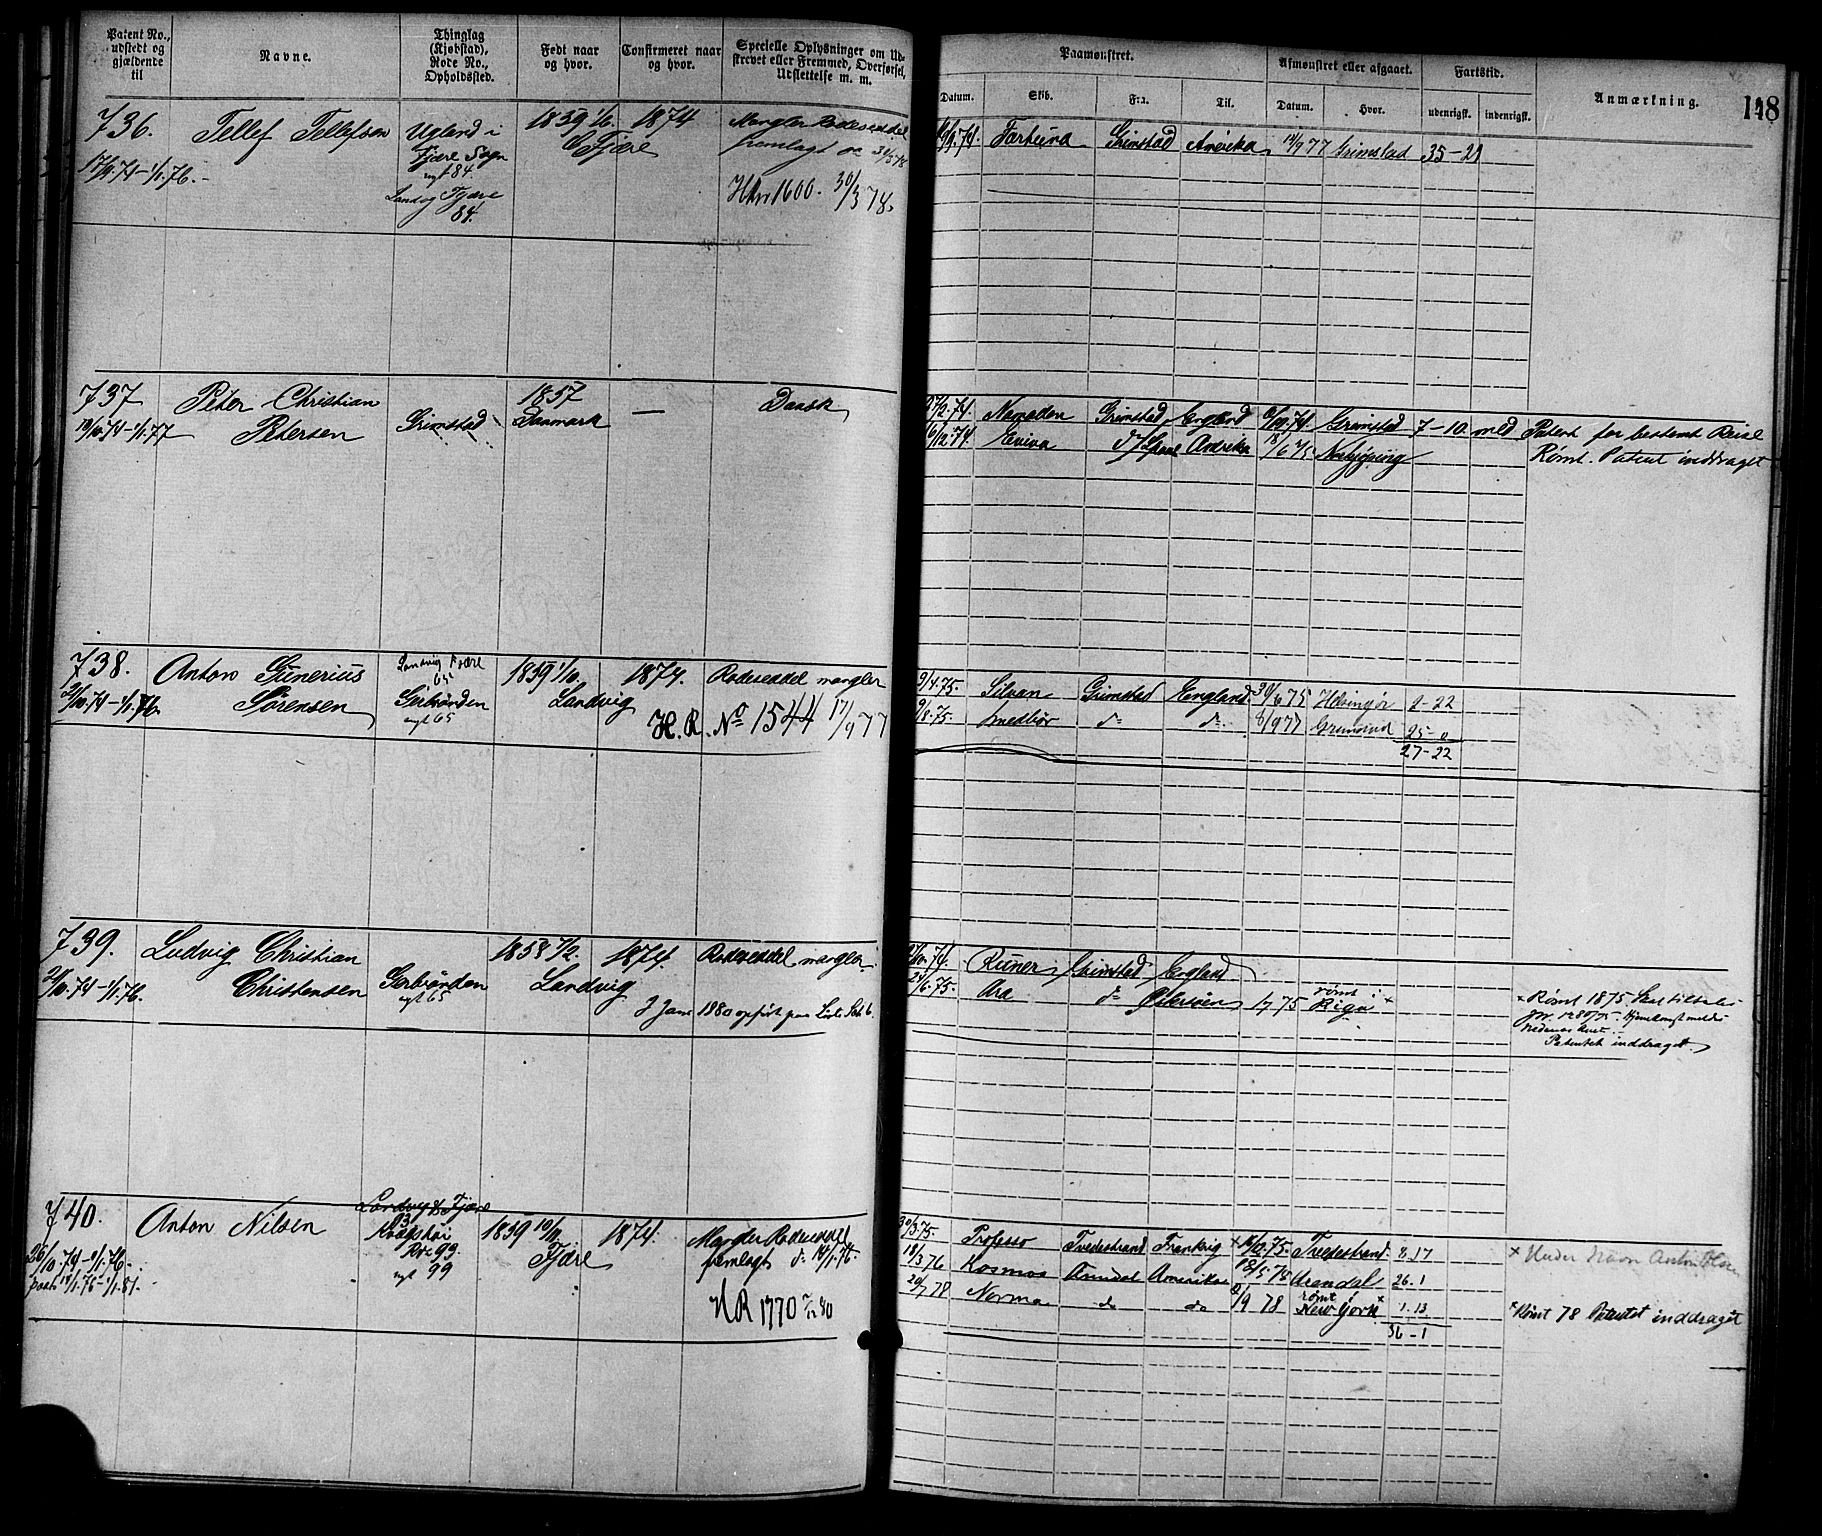 Patent No., udstedt og gjældende til
Navne.
Thinglag (Kjøbstad), Rode No., Opholdssted.
Født naar og hvor.
Confirmeret naar og hvor.
Specielle Oplysninger om Udskrevet eller Fremmed, Overførsel, Udslettelse m. m.
Paamønstret.
Datum.
Skib.
Fra.
Til.
Afmønstret eller afgaaet.
Datum.
Hvor.
Fartstid.
udenrigst.
indenrigst.
Anmærkning.
118
736.
Tellef Tellefsen
Ugland i
Fjære Sogn
nyt 84
Landvig Fjære
84.
1859 1/6.
Fjære
1874
Mangler Rodeseddel
fremlagt
HR 1600. 30/3 78.
17/9.74-1/1.76.
Fortuna Grimstad Amerika 14/9 77 Grimstad 35-29
737
Peter Christian
Petersen
Grimstad
1857
Danmark
—
Dansk
10/10.74-1/1.77
Grimstad England Grimstad 7-10 med Patent for bestemt Reise
6/12.74. Eviva Amerika Rømt. Patent inddraget
738.
Anton Gunerius
Sørensen
Landvig Fjære
65
nyt 65
1859 1/10.
Landvig
1874.
Rodeseddel mangler
H. R. No 1544 17/9 77
21/10.74-1/1.76.
9/4.75. Silvan Grimstad England 30/6 75 Helsingør 2-22
9/8.75. do do. 8/9 77 Grimstad 25-0
27-22
739.
Ludvig Christian
Christensen
nyt 65
1858 7/2.
Landvig
1874.
Rodeseddel mangler
2 Jan 1980 opført paa
21/10.74-1/1.76.
Runer Grimstad England
24/6.75. Ara do 1/7 75 rømt
Riga ×
× Rømt 1875. Skal tiltales
Patentet inddraget.
740.
Anton Nilsen
Landvig & Fjære
Rde 99
nyt 99
1859 10/11.
Fjære
1874.
Mangler Rodeseddel
fremlagt d. 14/1.76.
HR 1770 80
26/10.74-1/1.76.
30/3.75 Professo Tvedestrand Frankrig × 16/10.75 Tvedestrand 8.17 × Under Navn Anton Olsen
18/3 76 Kosmos Arendal Amerika 18/5.78 Arendal 26.1
20/7 78 Norma do do 2/9 78 rømt
New York × 1.13 × Rømt 78 Patentet inddraget
36-1